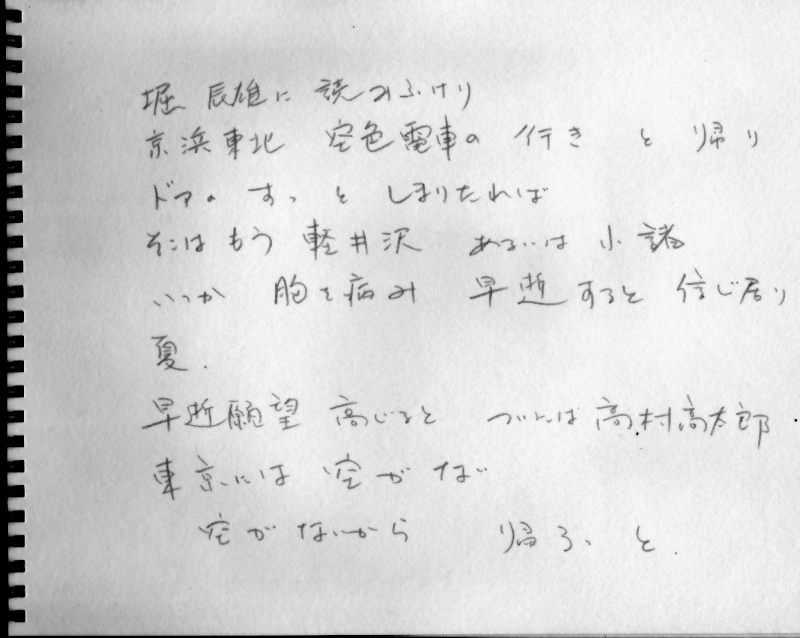 堀 辰雄に 読みふけり
京浜東北 空色電車の 行き と 帰り
ドアの すっ と しまりたれば
そこはもう 軽井沢 あるいは 小諸
いつか 胸を病み 早逝すると 信じ居り
夏.
早逝願望 高じると つぎには 高村高太郎
東京には 空がない
空がないから 帰ろう と.